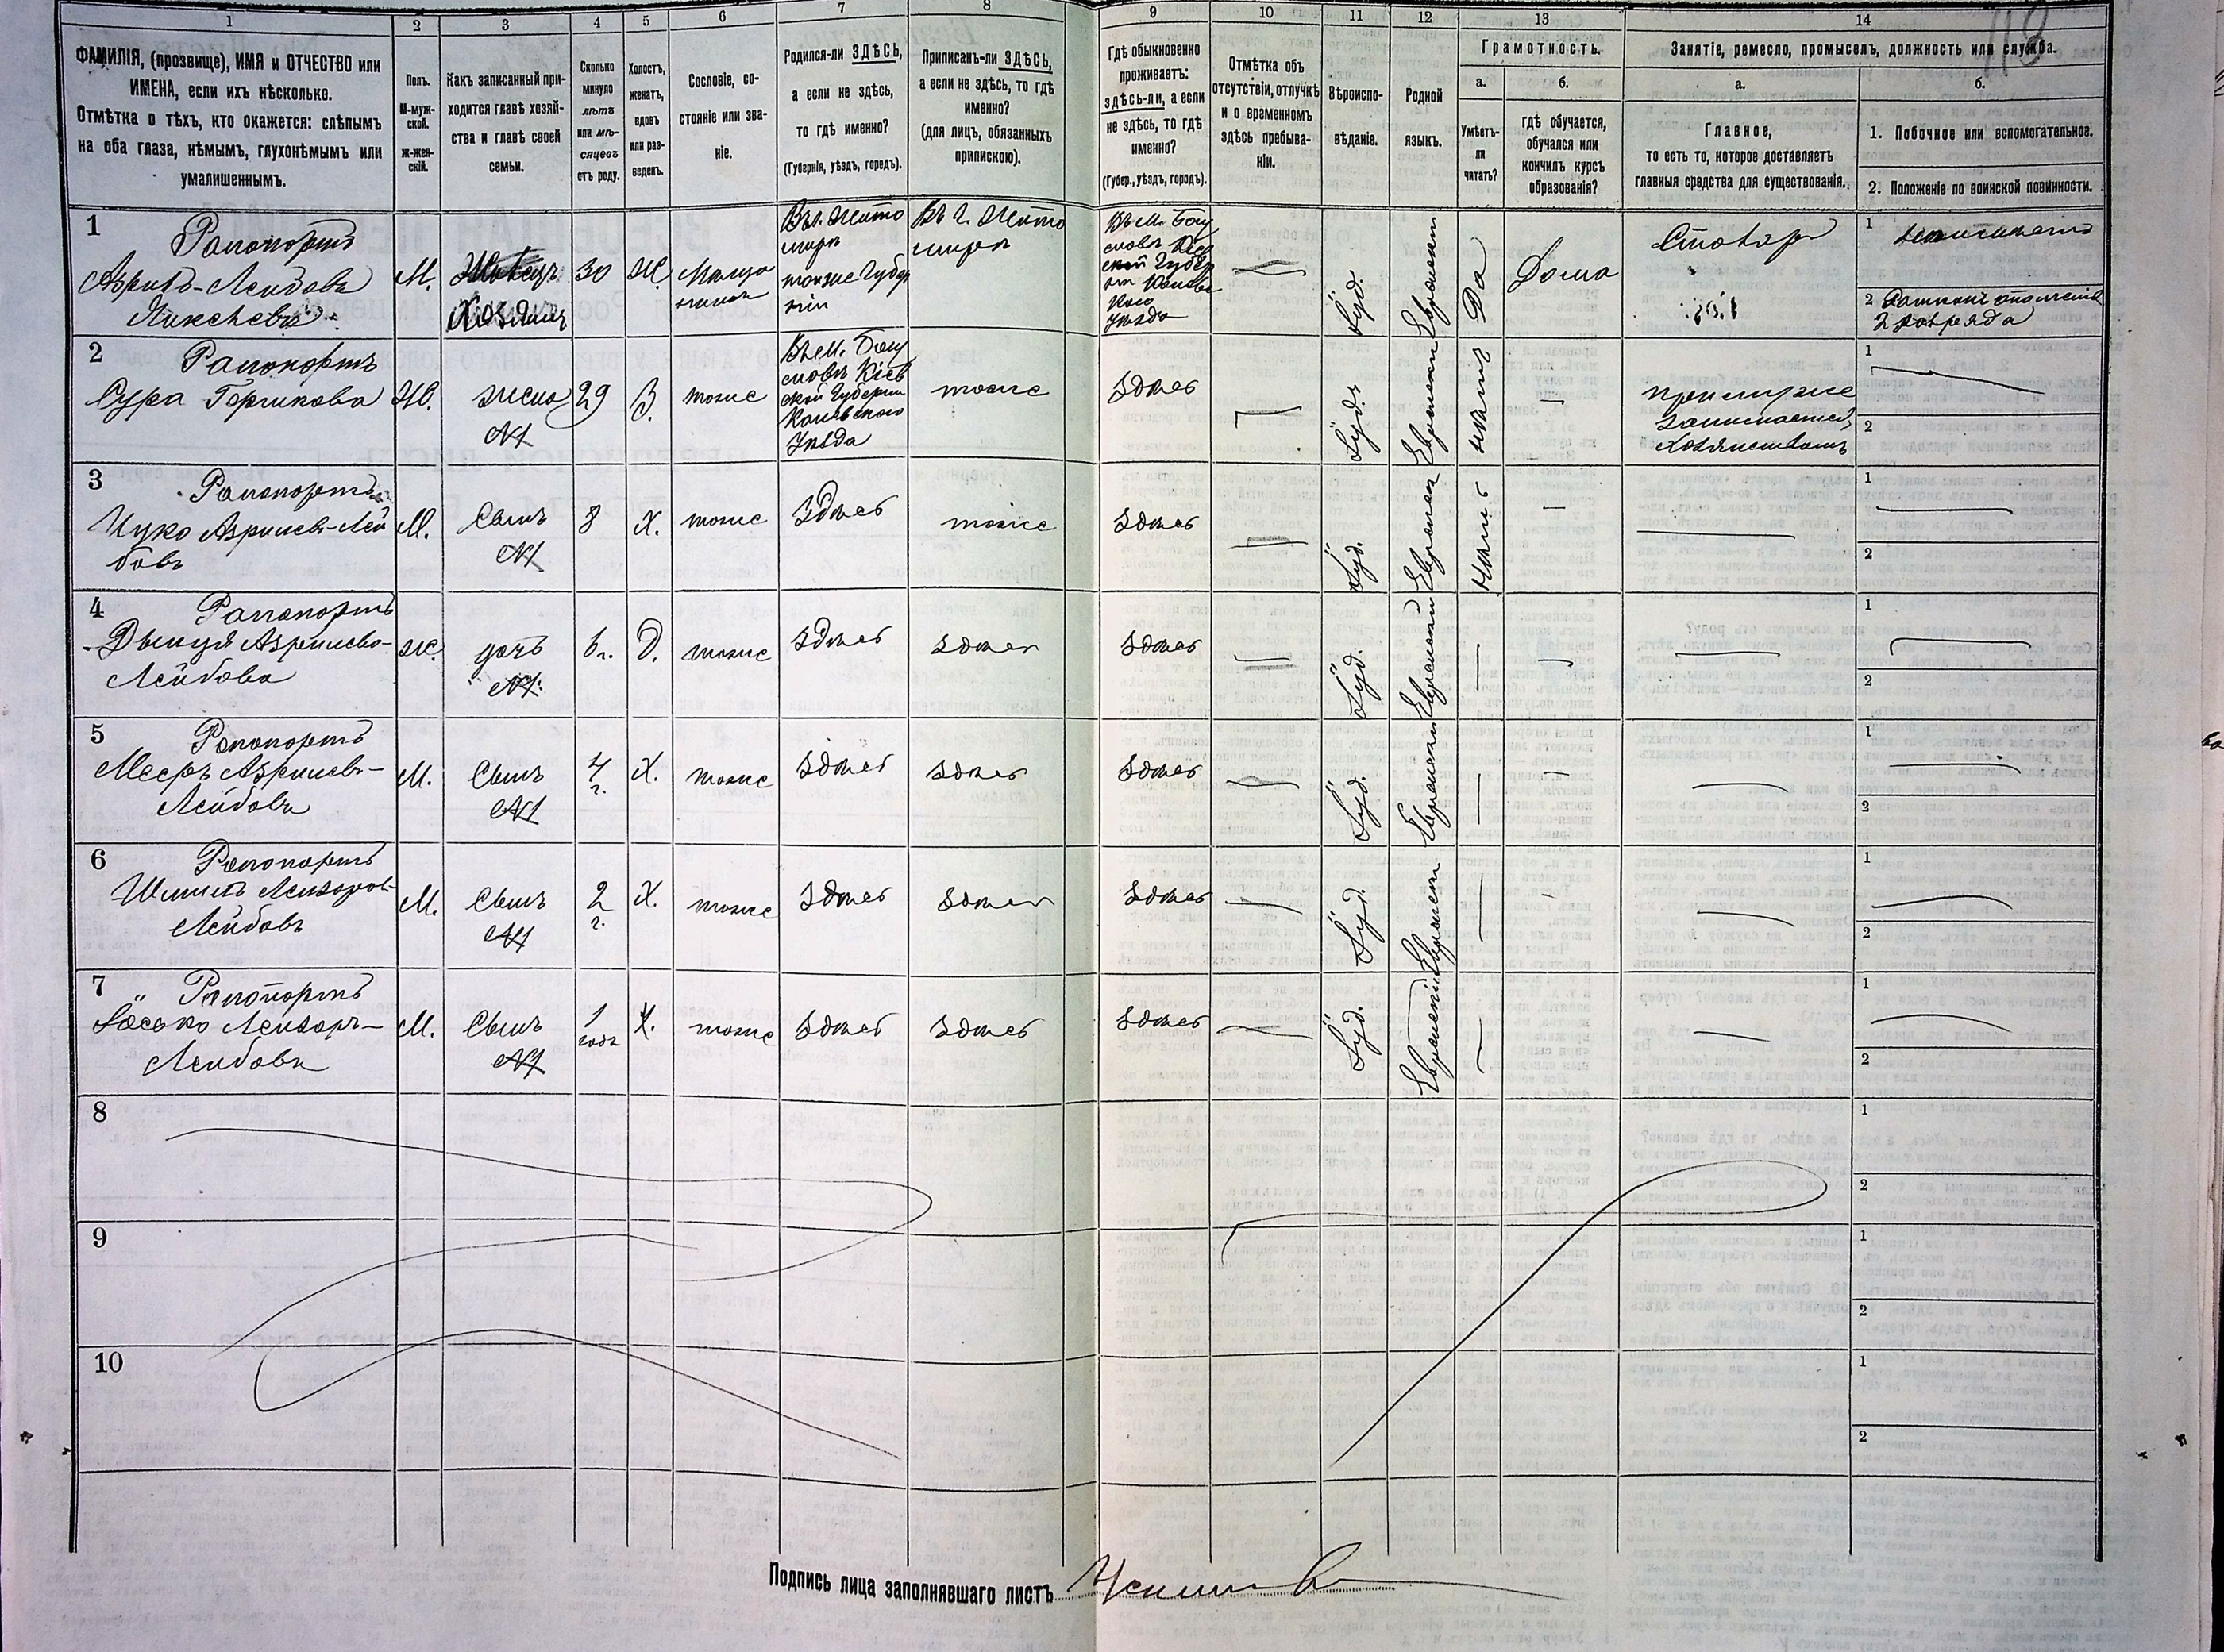 1 2 3 4 5 6 7 8 9 10 11 12 13 14
ФАМИЛІЯ, (прозвище), ИМЯ и ОТЧЕСТВО или
ИМЕНА, если ихъ нѣсколько.
Отмѣтка о тѣхъ, кто окажется: слѣпымъ
на оба глаза, нѣмымъ, глухонѣмымъ или
умалишеннымъ.
Полъ.
М-муж-
ской.
ж-жен-
скій.
Какъ записанный при-
ходится главѣ хозяй-
ства и главѣ своей
семьи.
Сколько
минуло
лѣтъ
или мѣ-
сяцевъ
отъ роду.
Холостъ,
женатъ,
вдовъ
или раз-
веденъ.
Сословіе, со-
стояніе или зва-
ніе.
Родился-ли ЗДѢСЬ,
а если не здѣсь,
то гдѣ именно?
(Губернія, уѣздъ, городъ).
Приписанъ-ли ЗДѢСЬ,
а если не здѣсь, то гдѣ
именно?
(для лицъ, обязанныхъ
припискою).
Гдѣ обыкновенно
проживаетъ:
здѣсь-ли, а если
не здѣсь, то гдѣ
именно?
(Губер., уѣздъ, городъ).
Отмѣтка объ
отсутствіи, отлучкѣ
и о временномъ
здѣсь пребыва-
ніи.
Вѣроиспо-
вѣданіе.
Родной
языкъ.
Грамотность.
а.
Умѣетъ-
ли
читать?
б.
гдѣ обучается,
обучался или
кончилъ курсъ
образованія?
Занятіе, ремесло, промыселъ, должность или служба.
а.
Главное,
то есть то, которое доставляетъ
главныя средства для существованія.
б.
1. Побочное или вспомогательное.
2. Положеніе по воинской повинности.
1
Рапопортъ
Азрилъ-Лейбовъ
М.
Хозяинъ
30
Ж
Въ г. Жито
мирѣ
тоже Губер
ніи
Въ г. Жито
мирѣ
Въ м. Богу
славѣ Кіев
ской Губер
Уѣзда
Іуд.
Еврейскій
Да
Дома
Столяръ
1
2
2 разряда
2
Рапопортъ
Сура
Ж.
жена
№1
29
З.
тоже
Въ м. Богу
славѣ Кіев
ской Губерніи
Каневскаго
Уѣзда
тоже
Здѣсь
Іуд.
Еврейскій
нѣтъ
при мужѣ
занимается
хозяйствомъ
1
2
3
Рапопортъ
Ицко Азрилевъ-Лей
бовъ
М.
Сынъ
№1
8
Х.
тоже
Здѣсь
тоже
Здѣсь
Іуд.
Еврейскій
Нѣтъ
1
2
4
Рапопортъ
Азрилева-
Лейбова
Ж.
дочь
№1
6 г.
Д.
тоже
Здѣсь
Здѣсь
Здѣсь
Іуд.
Еврейскій
1
2
5
Рапопортъ
Мееръ Азрилевъ-
Лейбовъ
М.
Сынъ
№1
4
г.
Х.
тоже
Здѣсь
Здѣсь
Здѣсь
Іуд.
Еврейскій
1
2
6
Рапопортъ
Лейбовъ
М.
Сынъ
№1
2
г.
Х.
тоже
Здѣсь
Здѣсь
Здѣсь
Іуд.
Еврейскій
1
2
7
Рапопортъ
Іосько
Лейбовъ
М.
Сынъ
№1
1
годъ
Х.
тоже
Здѣсь
Здѣсь
Здѣсь
Іуд.
Еврейскій
1
2
8
1
2
9
1
2
10
1
2
Подпись лица заполнявшаго листъ